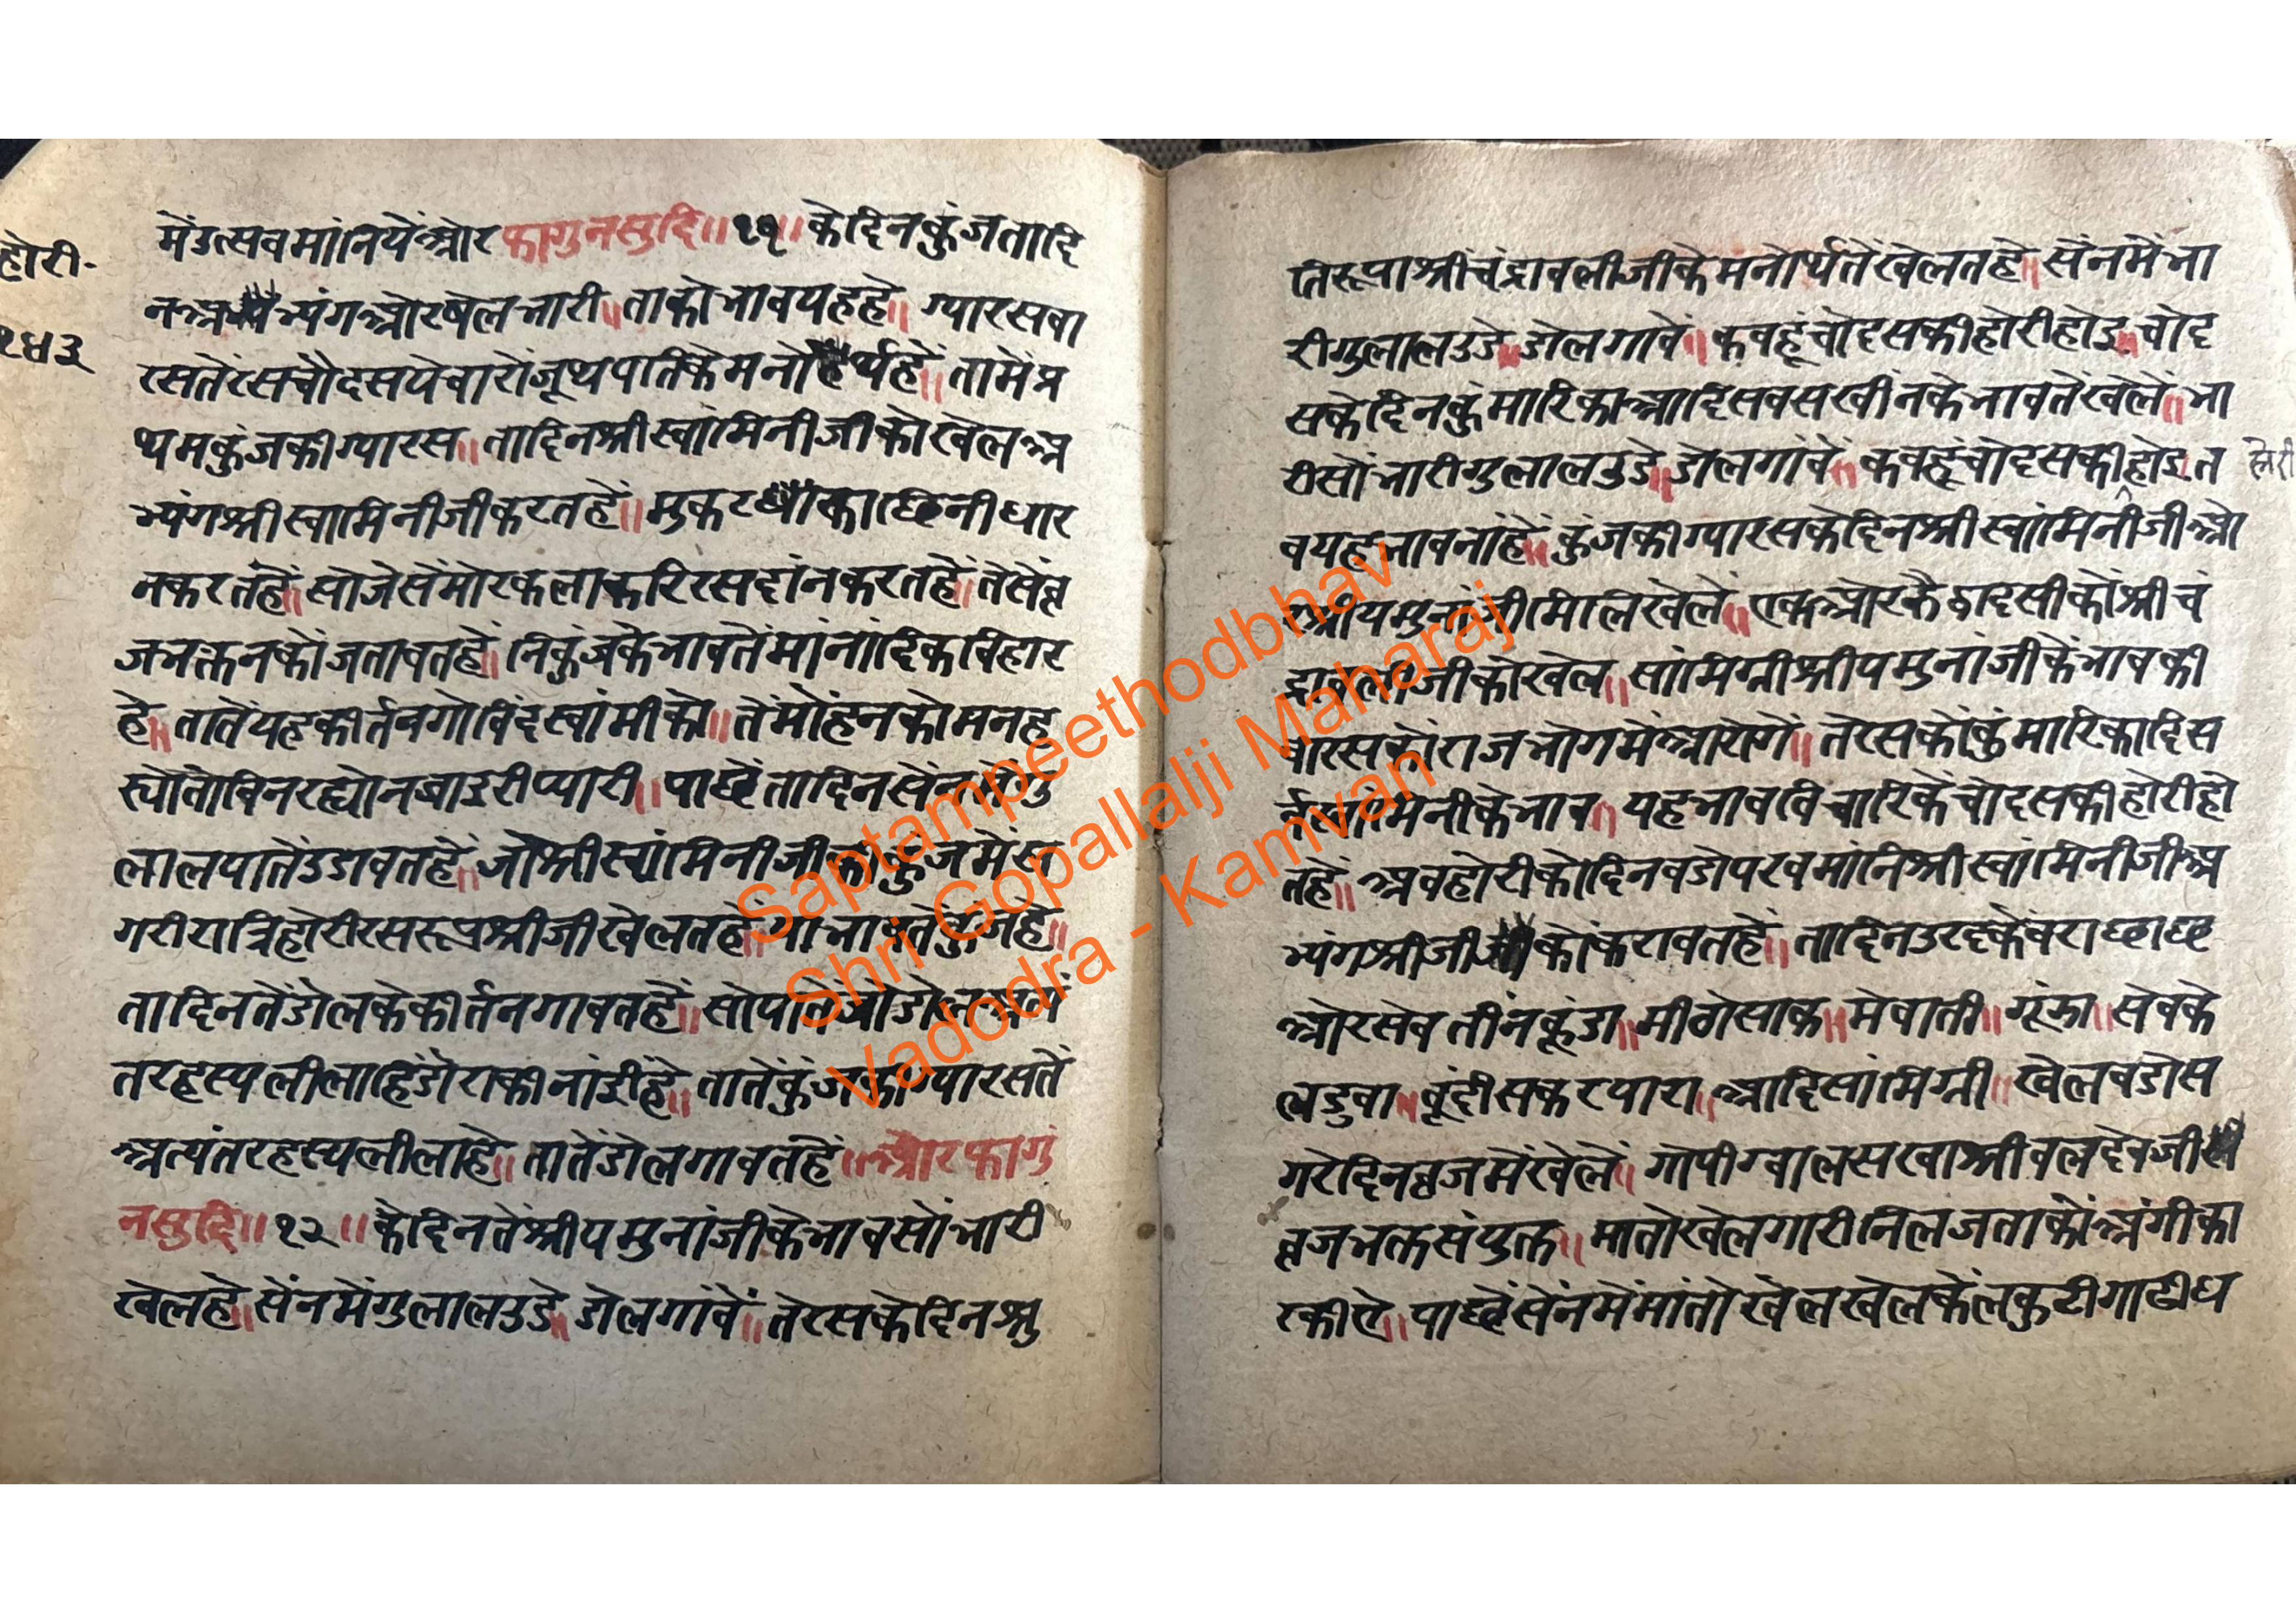 होरी.
१४३
मेंउत्सवमांनियेंओर फागुनसुदि॥११॥ केदिनकुंजतादि
नअभ्यंगओरषेलभारी॥ताकोभावयहहे॥ ग्यारसवा
रसतेरसचौदसयेचारोंजूथपतिकेमनोर्थहें॥तामेंप्र
थमकुंजकीग्यारस॥तादिनश्रीस्वामिनीजीकोखेलअ
भ्यंगश्रीस्वामिनीजीकरतहें॥मुकटकाछिनीधार
नकरतहें॥सोजेसेंमोरकलाकरिरसदांनकरतहें॥तेसेंव्र
जभक्तनकोंजतावतहें॥निकुंजकेभावतेंमांनांदिकविहार
हे॥तातेंयहकीर्तनगोविंदस्वांमीको॥तेंमोंहनकोमनह
स्योतोविनरह्योनजाइरीप्यारी॥पाछेंतादिनसेंनमेंगु
लालपातेंउडावतहें॥जोश्रीस्वांमिनीजीकीकुंजमेंस
गरीरात्रिहोरीरसरूपश्रीजीखेलतहे॥याभावतेंकुंजहे॥
तादिनतेंडोलकेकीर्तनगावतहें॥सोपातेंजोडोल
तरहस्यलीलाहिंडोराकीनांईंहे॥तातेंकुंजकीग्यारसतें
अत्यंतरहस्यलीलाहे॥तातेंडोलगावतहें॥ओरफागुं
नसुदि॥१२॥केदिनतेंश्रीयमुनांजीकेभावसोंभारी
खेलहे॥सेंनमेंगुलालउडे॥डोलगांवें॥तेरसकेदिनश्रु
तिरूपाश्रींचंद्रावलीजीकेमनोर्थतेंखेलतहे॥सेंनमेंभा
रीगुलालउडे॥डोलगावें॥कवहूंचोदसकीहोरीहोइ॥चोद
सकेदिनकुंमारिकाआदिसवसखींनकेभावतेंखेलें॥भा
रीसोंभारीगुलालउडे॥डोलगांवें॥कवहूंचोदसकीहोइत
होरी
वयहभावनांहें॥कुंजकीग्यारसकेदिनश्रीस्वांमिनीजीओ
रश्रीयमुनांजीमिलिखेलें॥एकओरकैद्वादसीकोंश्रीचं
द्रावलीजीकोखेल॥सांमिग्रीश्रीयमुनांजीकेंभावकी
वारसकोंराजभोगमेंआरोगें॥तेरसकोंकुंमारिकादिस
र्वसांमिनीकेभाव॥यहभावविचारिकेंचोदसकीहोरीहो
तहे॥अवहोरीकोदिनवडोपरवमांनिश्रीस्वांमिनीजीअ
भ्यंगश्रीजीकोंकरावतहें॥तादिनउरदकेवराछाछ
ओरसेवतींनकूंडा॥मीठोसाक॥मेवाती॥गूंझा॥सेवके
लडुवा॥बूंदीसकरपारा॥आदिसांमिग्री॥खेलवडोस
गरेदिनव्रजमेंखेलें॥गोपीग्वालसखाश्रीवलदेवजी
व्रजभक्तसंयुक्त॥मातोखेलगारीनिलजताकोंअंगीका
रकीऐ॥पाछेंसेंनमेंमांतोखेलखेलकेंलकुटीगाढीध
Saptampeethodbhav
Shri Gopallalji Maharaj
Vadodra - Kamvan